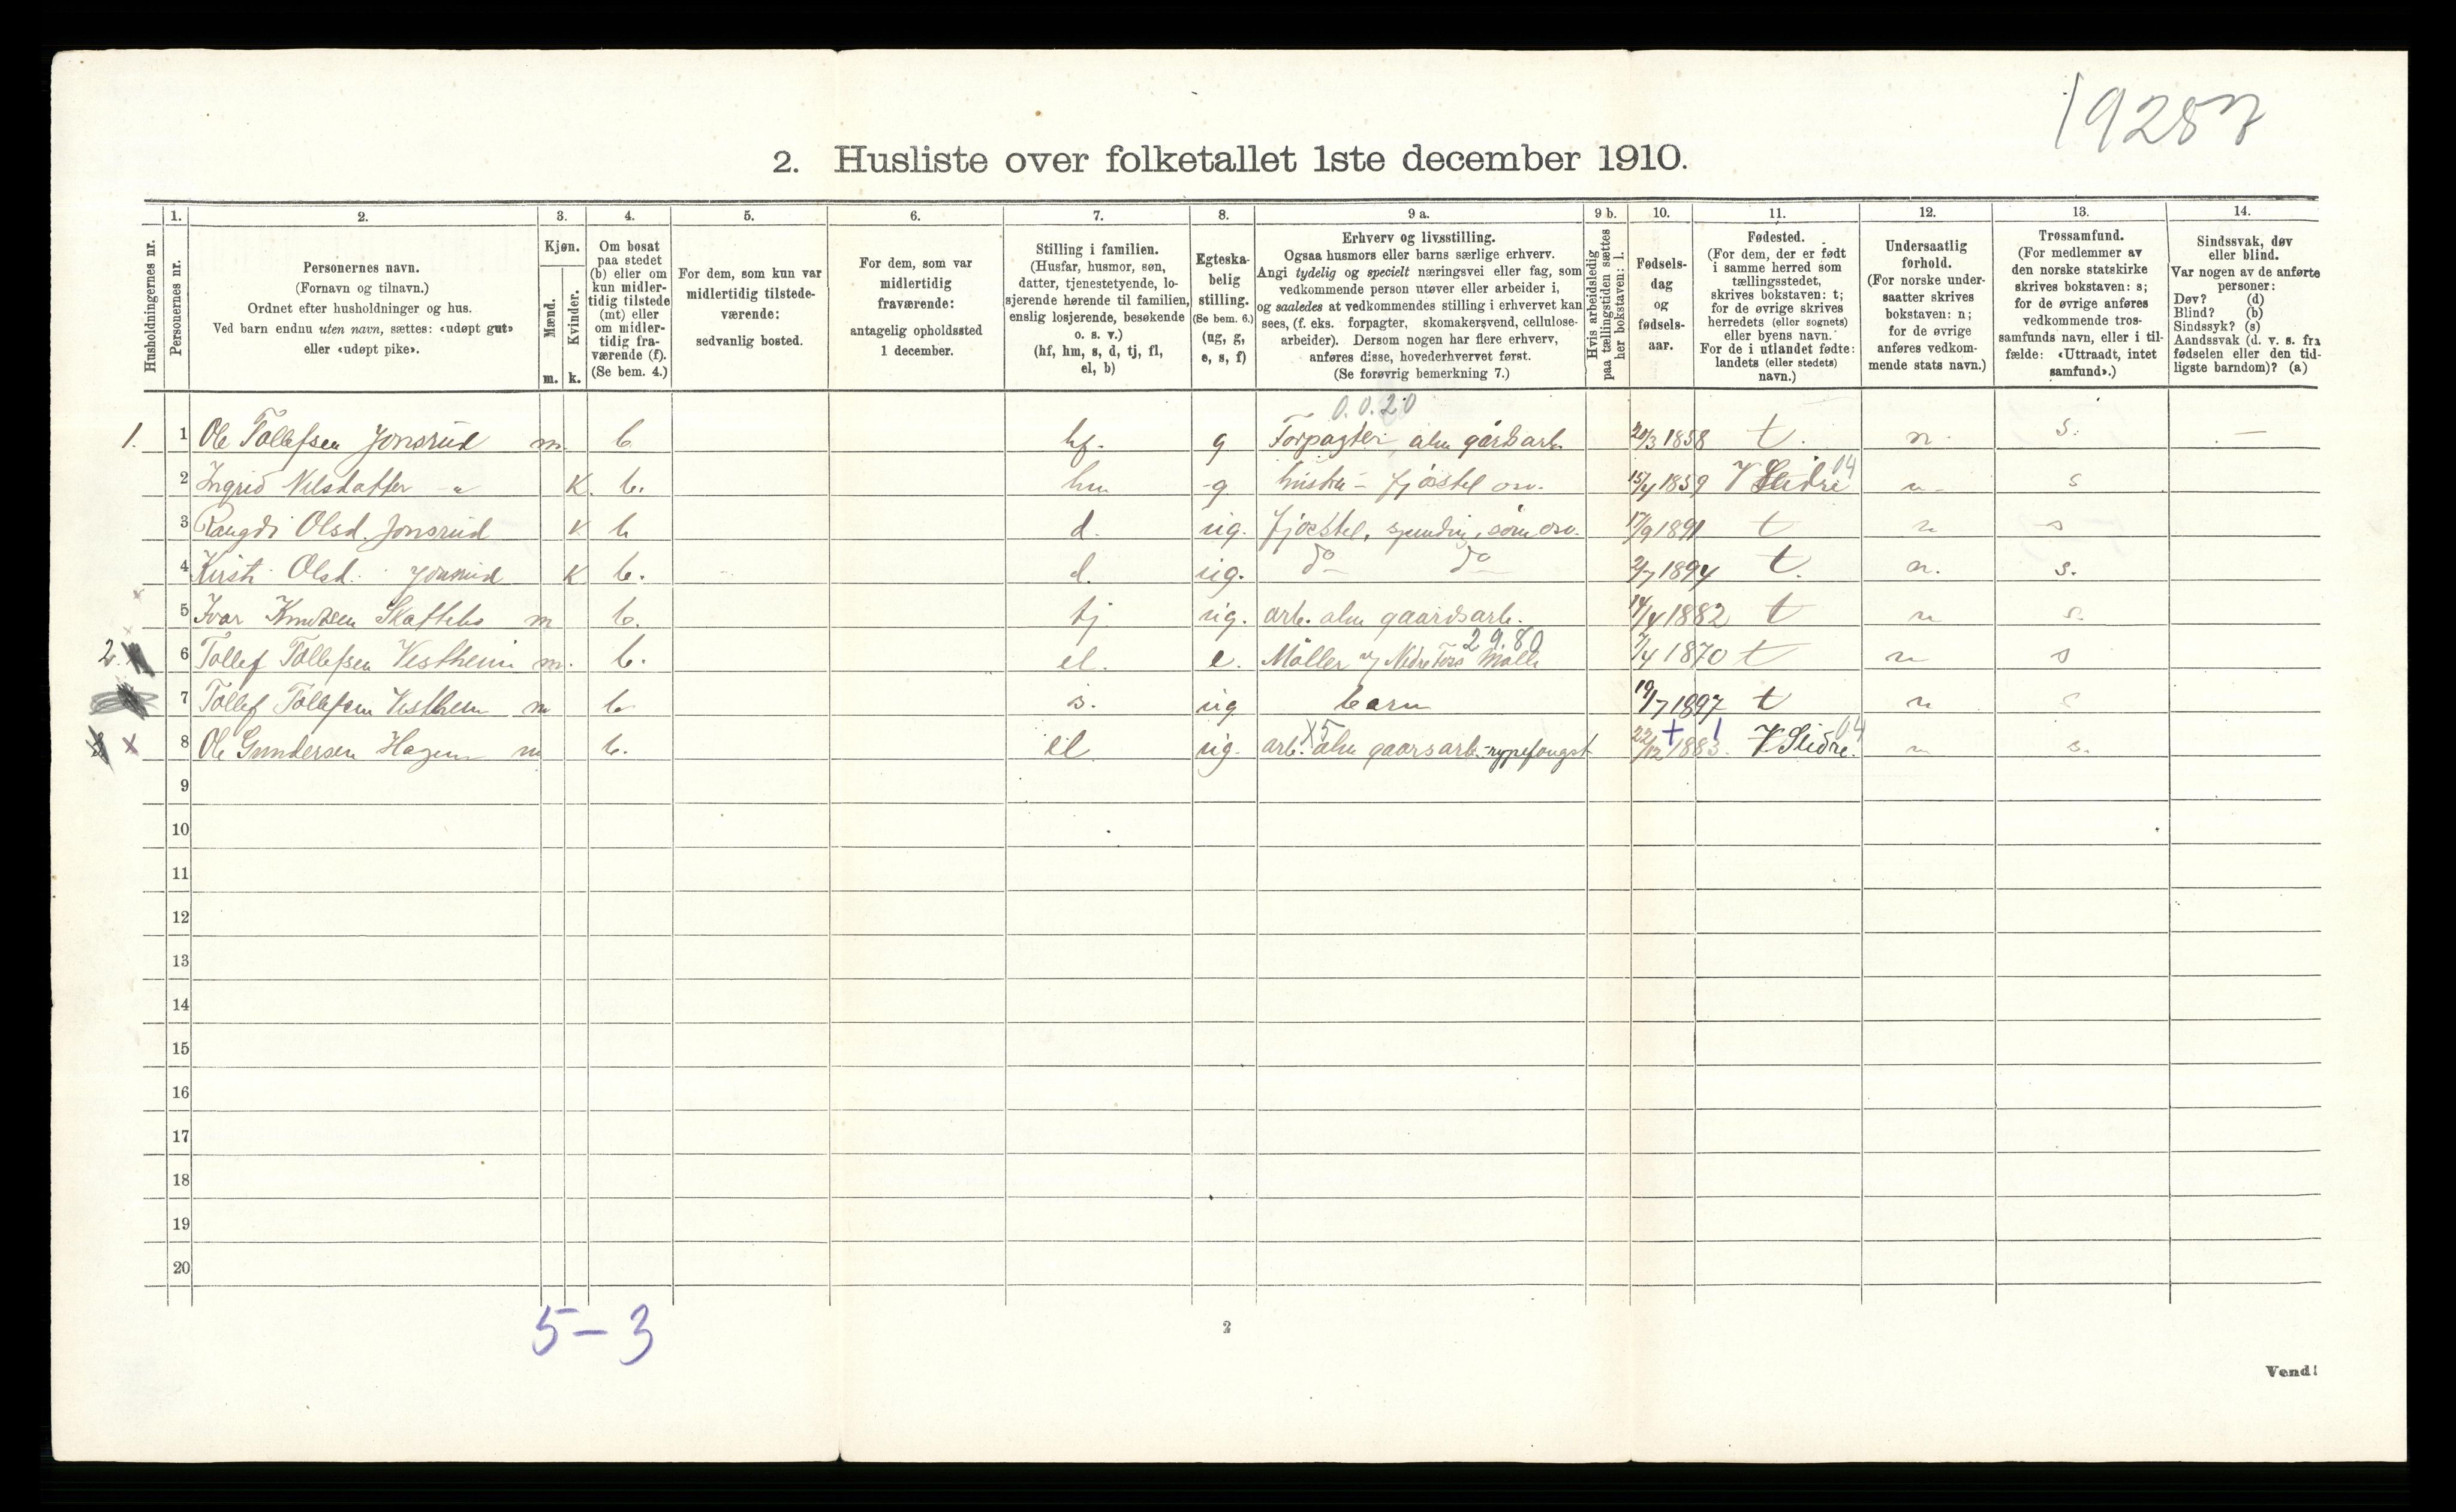 1928
2. Husliste over folketallet 1ste december 1910.
1. 2. 3. 4. 5. 6. 7. 8. 9 a. 9 b. 10. 11. 12. 13. 14.
Husholdningernes nr.
Personernes nr.
Personernes navn.
(Fornavn og tilnavn.)
Ordnet efter husholdninger og hus.
Ved barn endnu uten navn, sættes: «udøpt gut»
eller «udøpt pike».
Kjøn.
Mænd.
Kvinder.
m. k.
Om bosat
paa stedet
(b) eller om
kun midler-
tidig tilstede
(mt) eller
om midler-
tidig fra-
værende (f).
(Se bem. 4.)
For dem, som kun var
midlertidig tilstede-
værende:
sedvanlig bosted.
For dem, som var
midlertidig
fraværende:
antagelig opholdssted
1 december.
Stilling i familien.
(Husfar, husmor, søn,
datter, tjenestetyende, lo-
sjerende hørende til familien,
enslig losjerende, besøkende
o. s. v.)
(hf, hm, s, d, tj, fl,
el, b)
Egteska-
belig
stilling.
(Se bem. 6.)
(ug, g,
e, s, f)
Erhverv og livsstilling.
Ogsaa husmors eller barns særlige erhverv.
Angi tydelig og specielt næringsvei eller fag, som
vedkommende person utøver eller arbeider i,
og saaledes at vedkommendes stilling i erhvervet kan
sees, (f. eks. forpagter, skomakersvend, cellulose-
arbeider). Dersom nogen har flere erhverv,
anføres disse, hovederhvervet først.
(Se forøvrig bemerkning 7.)
Hvis arbeidsledig
paa tællingstiden sættes
her bokstaven: l.
Fødsels-
dag
og
fødsels-
aar.
Fødested.
(For dem, der er født
i samme herred som
tællingsstedet,
skrives bokstaven: t;
for de øvrige skrives
herredets (eller sognets)
eller byens navn.
For de i utlandet fødte:
landets (eller stedets)
navn.)
Undersaatlig
forhold.
(For norske under-
saatter skrives
bokstaven: n;
for de øvrige
anføres vedkom-
mende stats navn.)
Trossamfund.
(For medlemmer av
den norske statskirke
skrives bokstaven: s;
for de øvrige anføres
vedkommende tros-
samfunds navn, eller i til-
fælde: «Uttraadt, intet
samfund».)
Sindssvak, døv
eller blind.
Var nogen av de anførte
personer:
Døv? (d)
Blind? (b)
Sindssyk? (s)
Aandssvak (d. v. s. fra
fødselen eller den tid-
ligste barndom)? (a)
0.0.20
1. 1 Ole Tollefsen Jonsrud m. b hf. g Forpagter, alm gårdsarb. 20/3 1858 t. n. s. —
04
2 Ingrid Nilsdatter " K. b. hm g hustru - fjøsstel osv. 15/4 1859 V Slidre n s
3 Rangdi Olsd. Jonsrud k b d. ug. fjøsstel, spinding, søm osv. 17/9 1891 t n s
4 Kirsti Olsd. Jonsrud K b. d. ug. do do 2/7 1894 t. n. s.
5 Ivar Knutsen m b. tj. ug. arb. alm gaardsarb. 14/4 1882 t n s.
29.80
2. 6 Tollef Tollefsen Vestheim m. b. el. e. Møller v/ Nedre Fors Mølle 7/4 1870 t n s
7 Tollef Tollefsen Vestheim m b s. ug barn 19/7 1897 t n s
X5 + 1 04
x 8 Ole Gundersen Hagen m b. el ug. arb. alm gaarsarb. - rypefangst 22/12 1883. V Slidre. n s.
9
10
11
12
13
14
15
16
17
18
19
20
5 - 3
2
Vend!